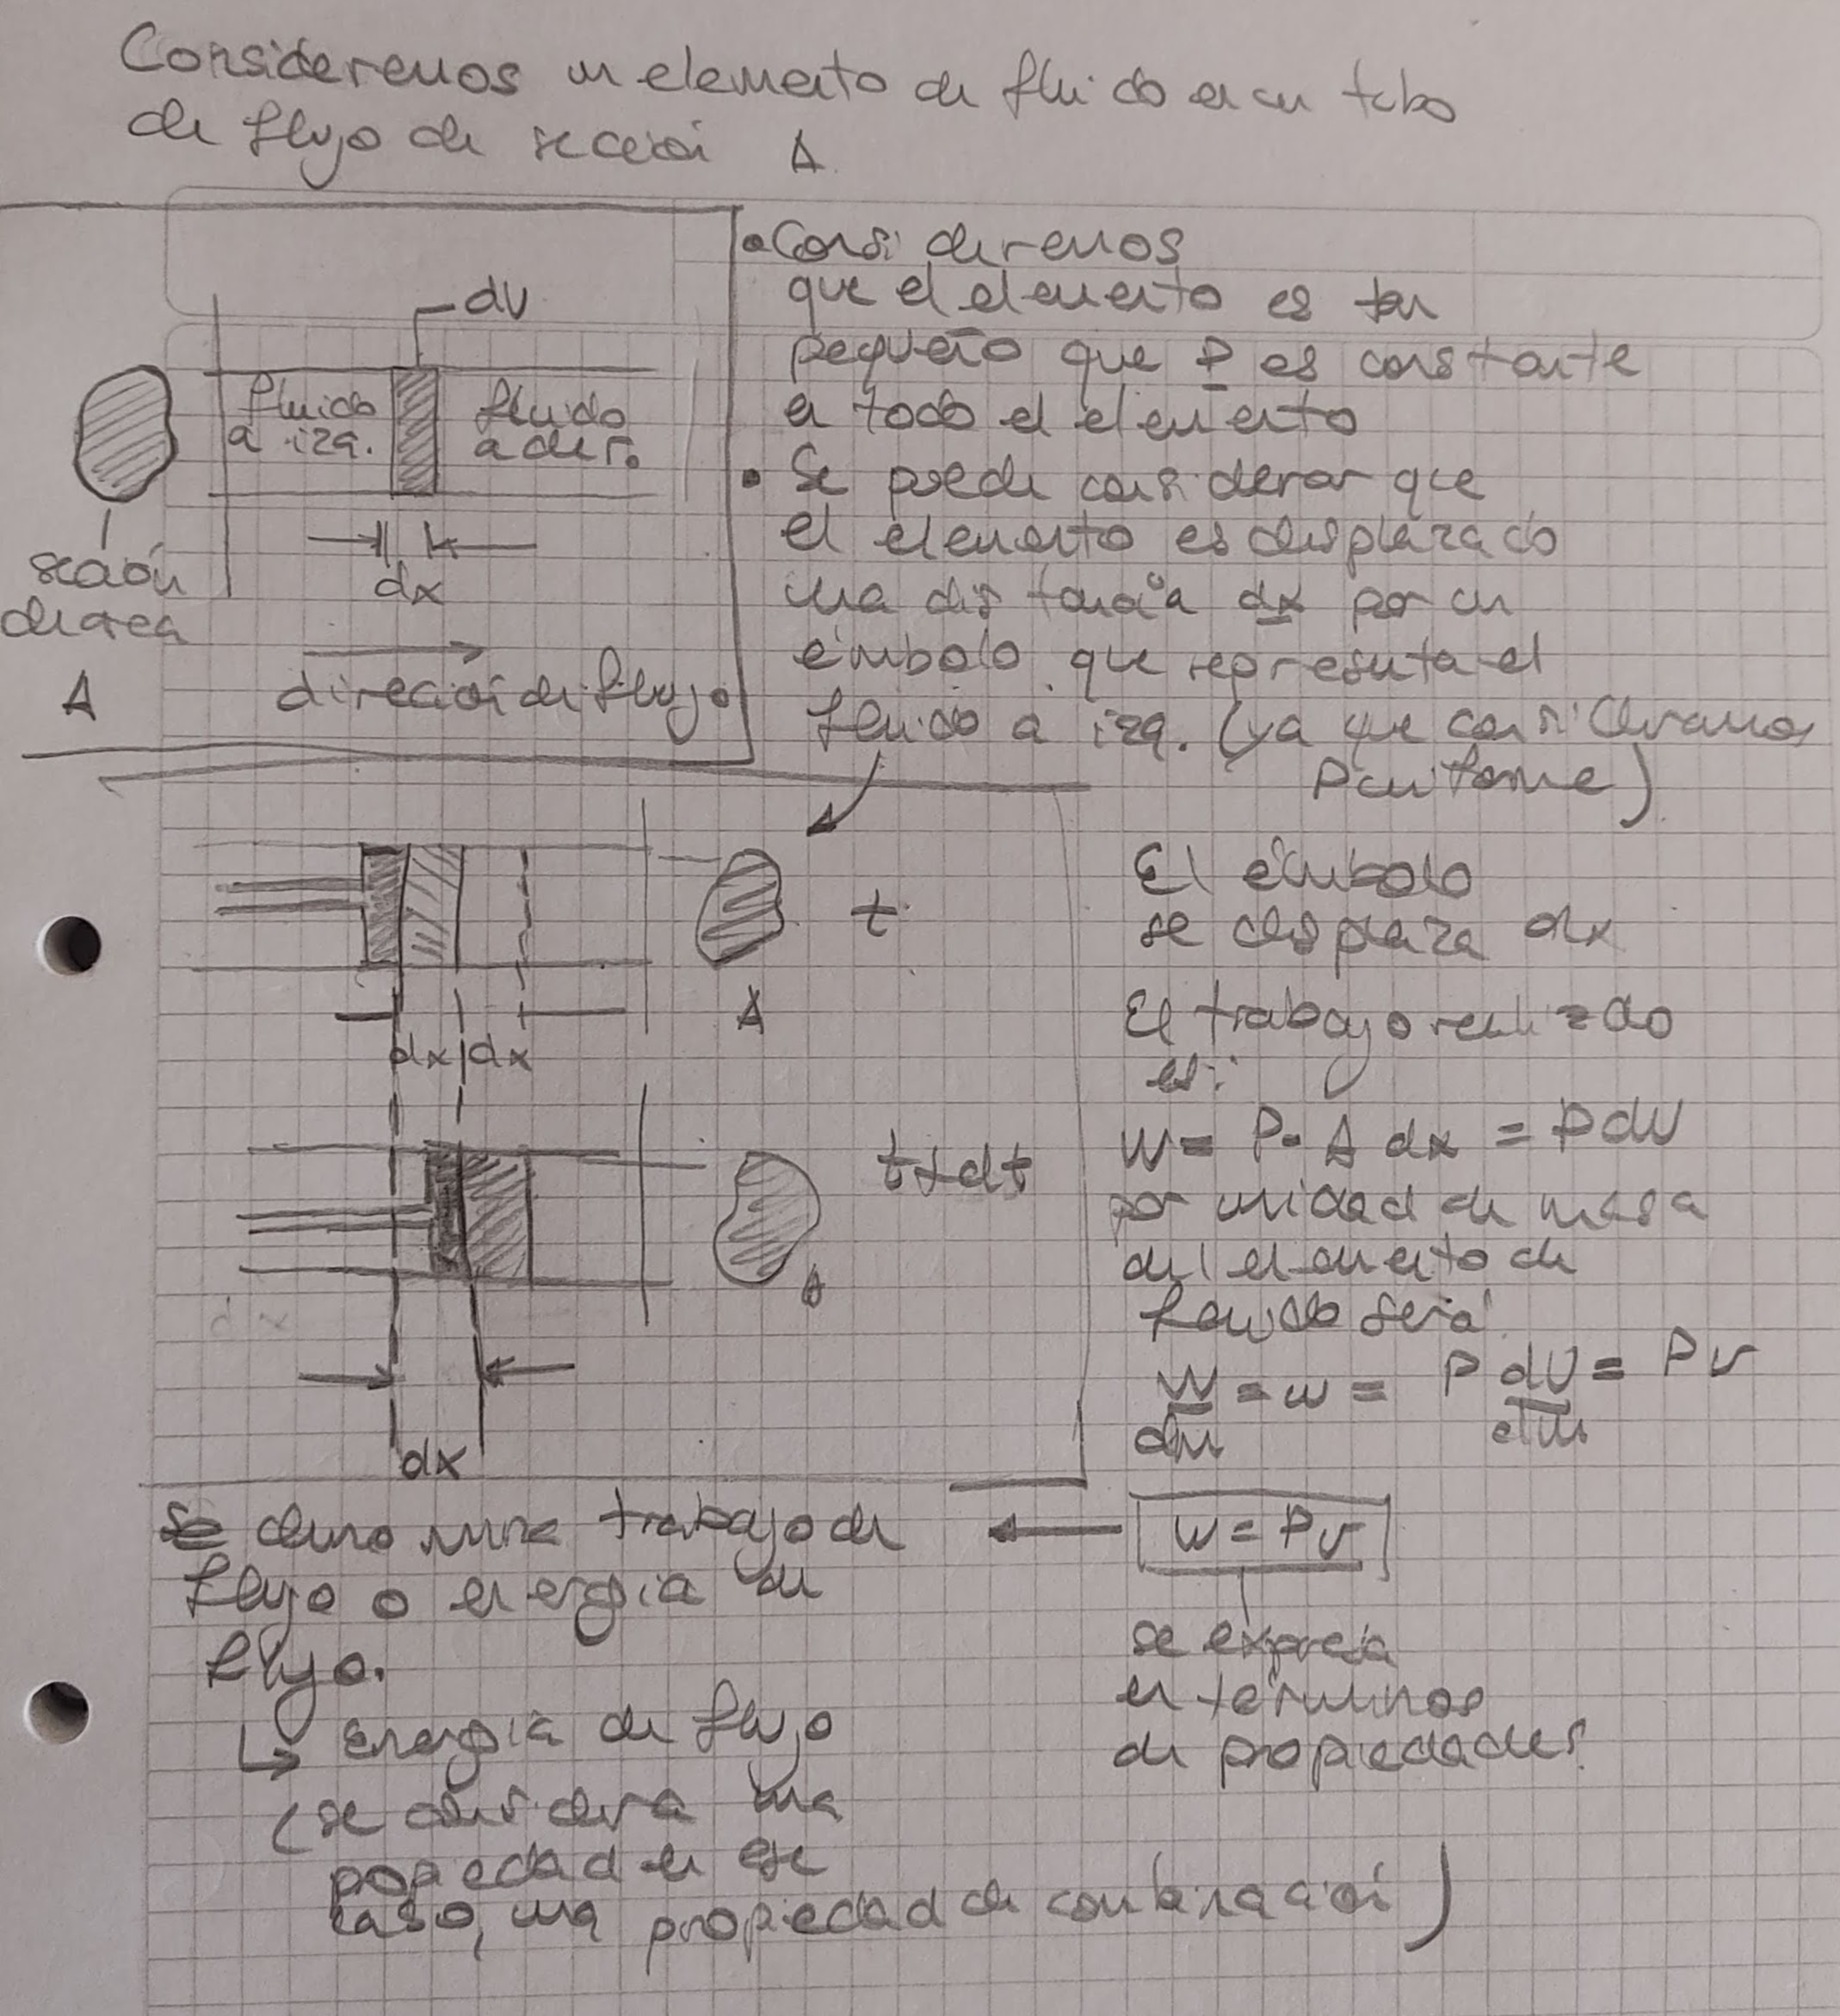 Consideremos un elemento de fluido en un tubo
de flujo de sección A
dV
fluido
a izq.
fluido
a der.
dx
sección
de area
A
dirección de flujo
• Consideremos
que el elemento es tan
pequeño que P es constante
en todo el elemento
• Se puede considerar que
el elemento es desplazado
una distancia dx por un
émbolo que representa el
fluido a izq. (ya que consideramos
P uniforme)
t
A
dx dx
t+dt
A
dx
El émbolo
se desplaza dx
El trabajo realizado
es:
W = P. A dx = P dV
por unidad de masa
del elemento de
será
W/dm = w = P dV/dm = Pv
w = Pv
se expresa
en términos
de propiedades.
trabajo de
flujo o energía de
flujo.
↳ Energía de flujo
(se considera una
propiedad en ese
caso, una propiedad de combinación)